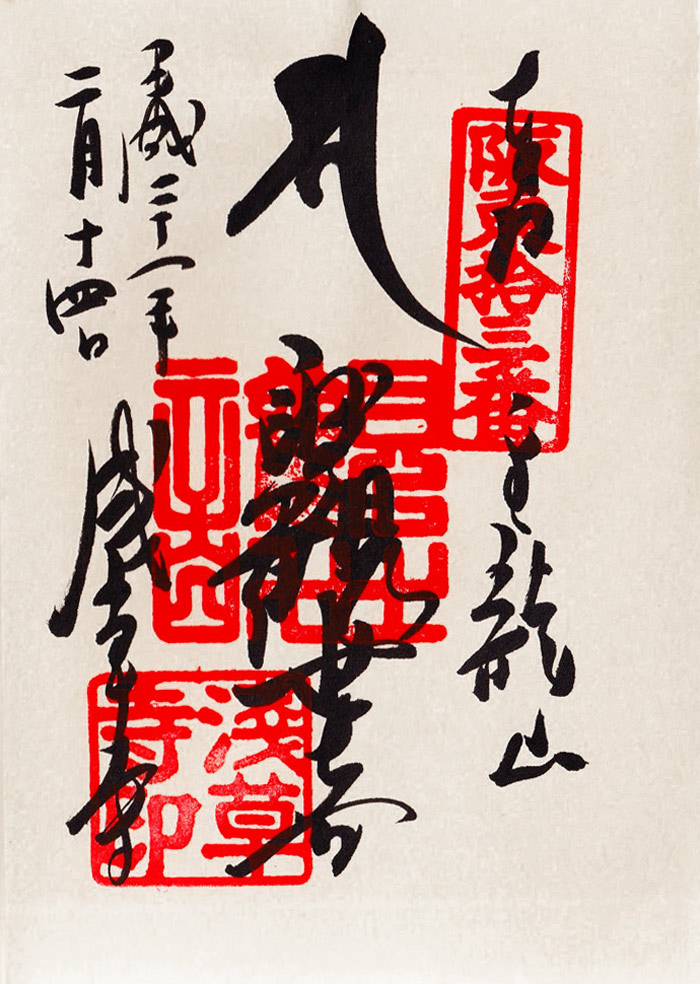 奉拝
阪東拾三番
金龍山
聖観世音
平成二十一年
二月十四日
浅草寺
淺草寺印